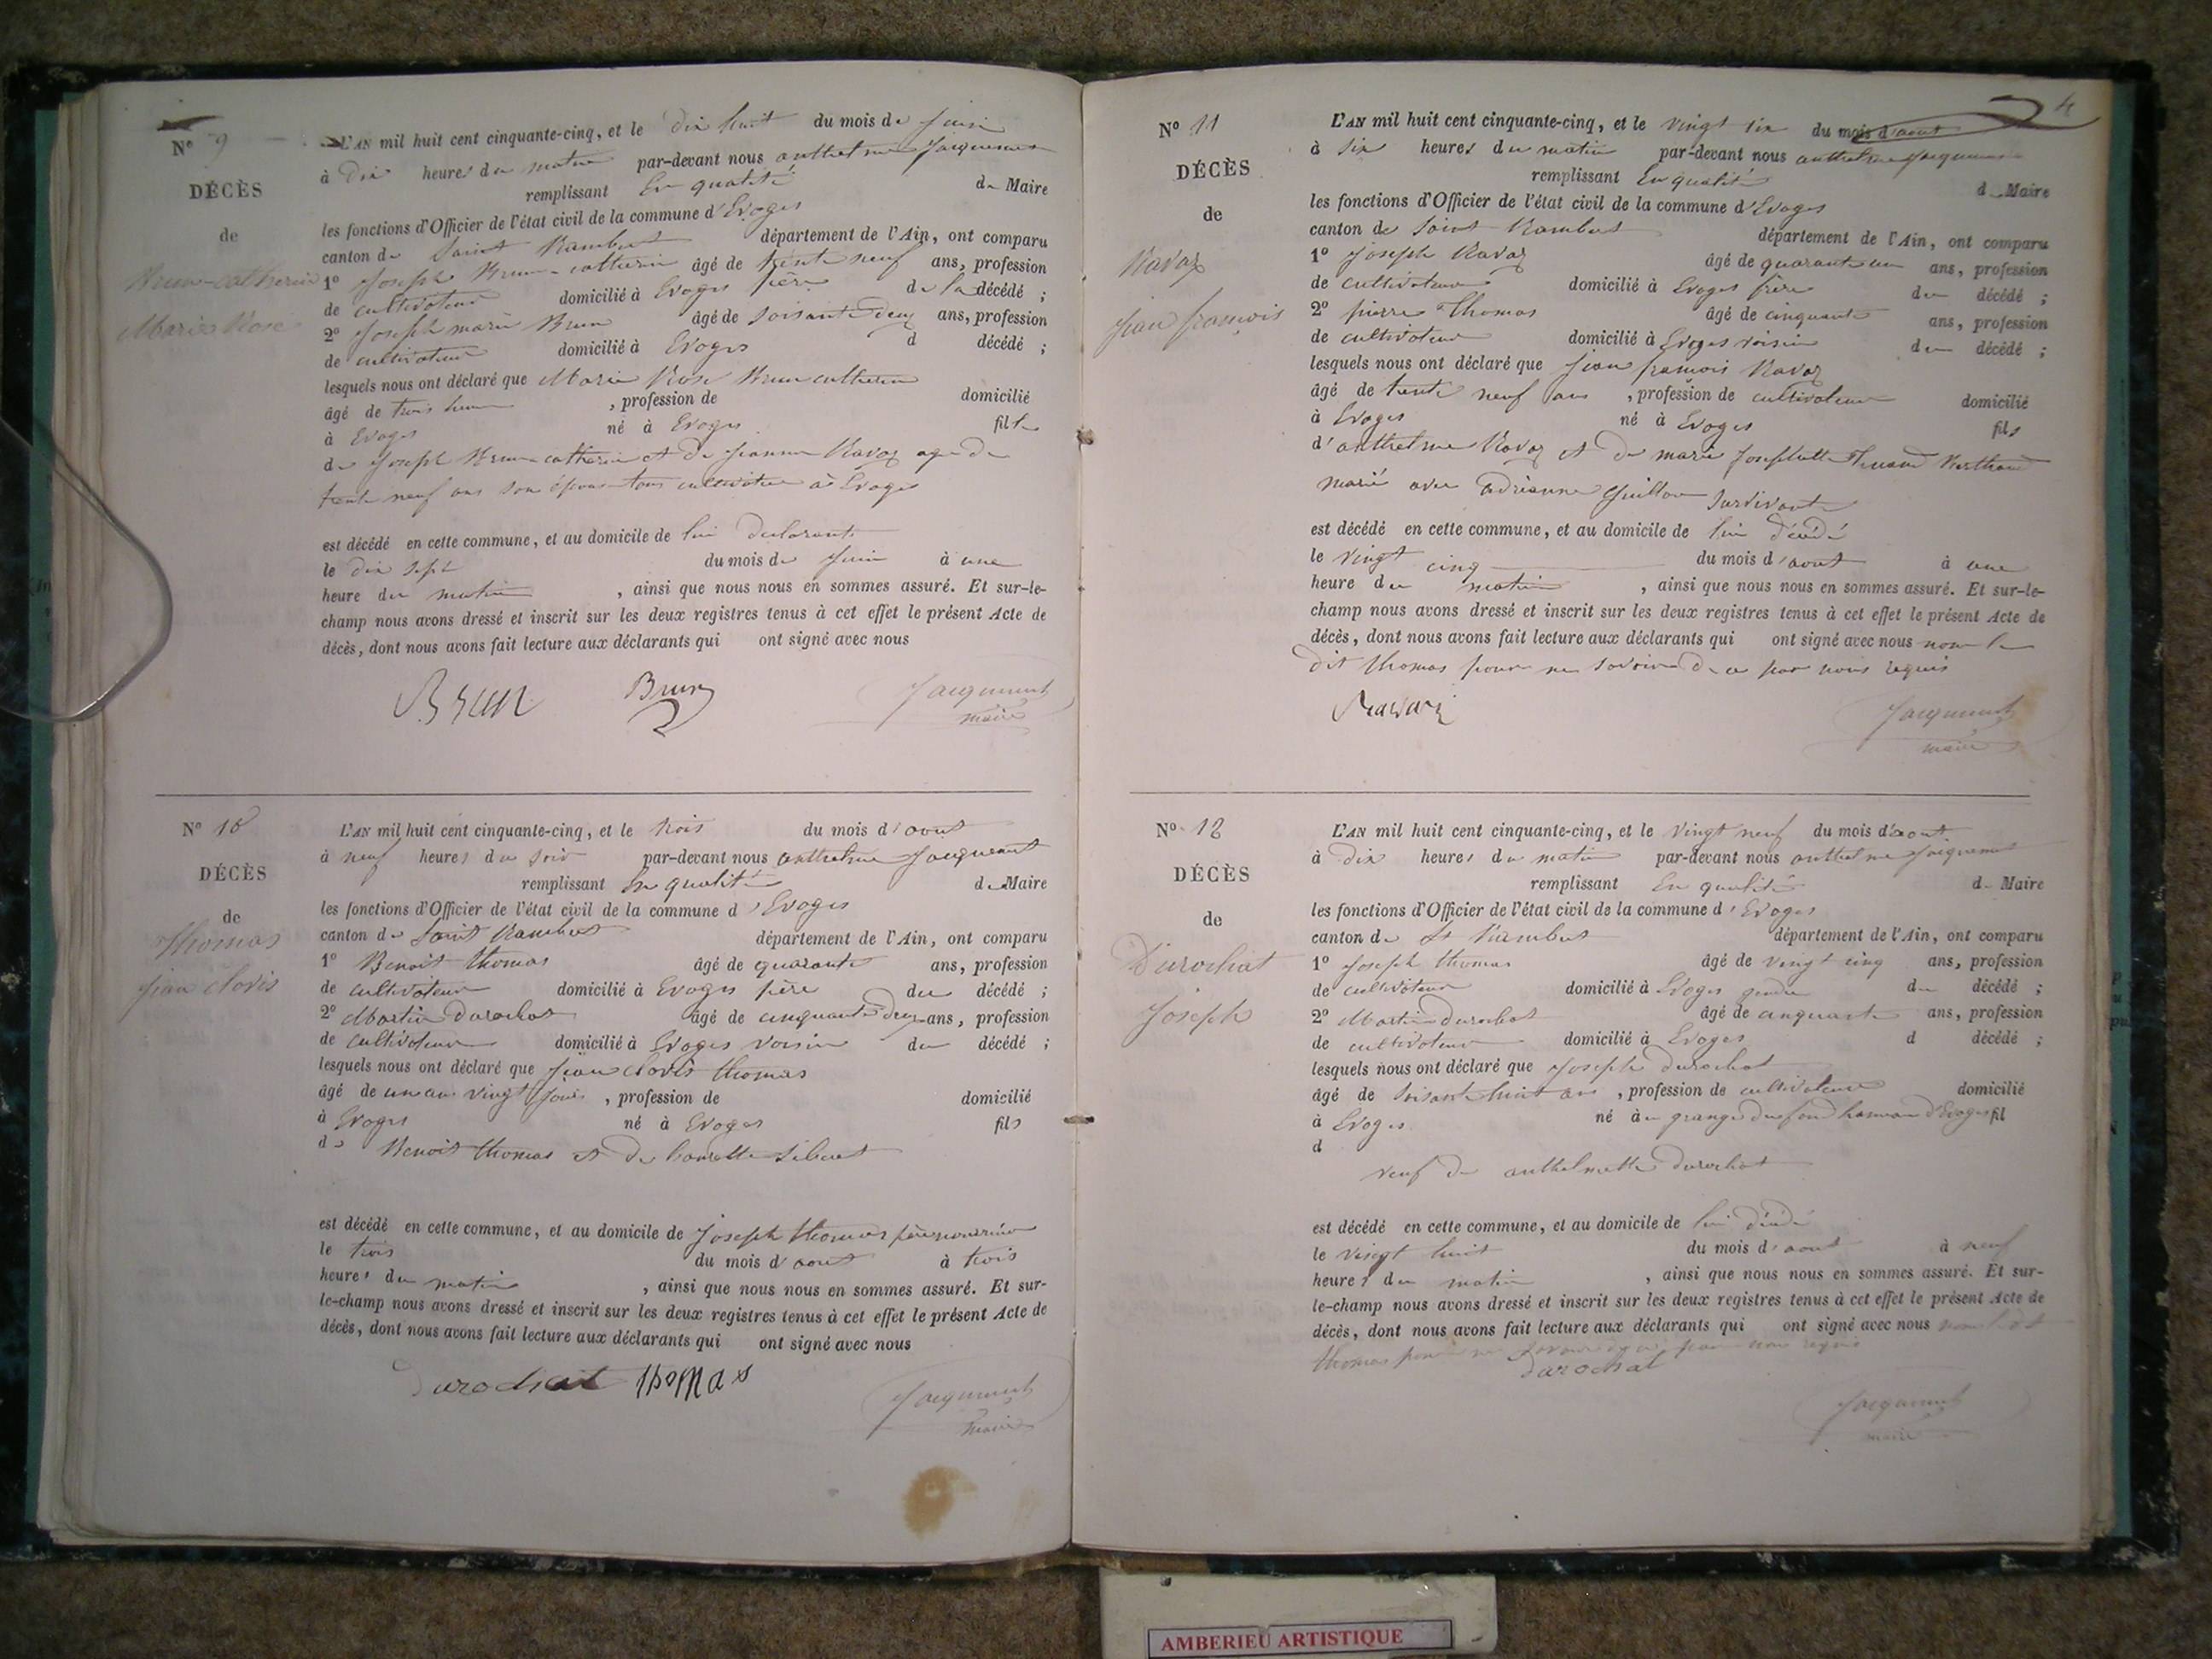 Nº 9
DÉCÈS
de
Brun-catherin
Marie Rose
L'AN mil huit cent cinquante-cinq, et le dix huit du mois de Juin
à Dix heures du matin par-devant nous anthelme Jacquemet
remplissant En qualité de Maire
les fonctions d'Officier de l'état civil de la commune d'Evoges
canton de Saint Rambert département de l'Ain, ont comparu
1º Joseph Brun-catherin âgé de trente neuf ans, profession
de cultivateur domicilié à Evoges père de la décédé ;
2º Joseph marie Brun âgé de soisante deux ans, profession
de cultivateur domicilié à Evoges d décédé ;
lesquels nous ont déclaré que Marie Rose Brun catherin
âgé de trois , profession de domicilié
à Evoges né à Evoges fille
de Joseph Brun-catherin et de Jeanne Ravaz age de
trente neuf ans son épouse tous cultivateur à Evoges
est décédé en cette commune, et au domicile de lui declarant
le dix sept du mois de Juin à une
heure du matin , ainsi que nous nous en sommes assuré. Et sur-le-
champ nous avons dressé et inscrit sur les deux registres tenus à cet effet le présent Acte de
décès, dont nous avons fait lecture aux déclarants qui ont signé avec nous
Brun Brun Jacquemet
maire
Nº 10
DÉCÈS
de
Thomas
jean clovis
L'AN mil huit cent cinquante-cinq, et le trois du mois d'aout
à neuf heures du soir par-devant nous anthelme Jacquemet
remplissant En qualité de Maire
les fonctions d'Officier de l'état civil de la commune d'Evoges
canton de Saint Rambert département de l'Ain, ont comparu
1º Benoit thomas âgé de quarante ans, profession
de cultivateur domicilié à Evoges père du décédé ;
2º Martin Durochat âgé de cinquante deux ans, profession
de cultivateur domicilié à Evoges voisin du décédé ;
lesquels nous ont déclaré que Jean clovis thomas
âgé de un an vingt jours , profession de domicilié
à Evoges né à Evoges fils
de Benoit thomas et de
est décédé en cette commune, et au domicile de Joseph thomas
le trois du mois d'aout à trois
heures du matin , ainsi que nous nous en sommes assuré. Et sur-
le-champ nous avons dressé et inscrit sur les deux registres tenus à cet effet le présent Acte de
décès, dont nous avons fait lecture aux déclarants qui ont signé avec nous
durochat thomas Jacquemet
maire
4
Nº 11
DÉCÈS
de
Ravaz
jean françois
L'AN mil huit cent cinquante-cinq, et le vingt six du mois d'aout
à six heures du matin par-devant nous anthelme Jacquemet
remplissant En qualité de Maire
les fonctions d'Officier de l'état civil de la commune d'Evoges
canton de Saint Rambert département de l'Ain, ont comparu
1º Joseph Ravaz âgé de quarante un ans, profession
de cultivateur domicilié à Evoges frère du décédé ;
2º pierre Thomas âgé de cinquante ans, profession
de cultivateur domicilié à Evoges voisin du décédé ;
lesquels nous ont déclaré que jean françois Ravaz
âgé de trente neuf ans , profession de cultivateur domicilié
à Evoges né à Evoges fils
d'anthelme Ravaz et de marie Josephette
marié avec adrienne Guillon survivante
est décédé en cette commune, et au domicile de lui décédé
le vingt cinq du mois d'aout à une
heure du matin , ainsi que nous nous en sommes assuré. Et sur-le-
champ nous avons dressé et inscrit sur les deux registres tenus à cet effet le présent Acte de
décès, dont nous avons fait lecture aux déclarants qui ont signé avec nous non le
dit thomas pour ne savoir de ce par nous requis
Ravaz Jacquemet
maire
Nº 12
DÉCÈS
de
Durochat
Joseph
L'AN mil huit cent cinquante-cinq, et le vingt neuf du mois d'aout
à Dix heures du matin par-devant nous anthelme Jacquemet
remplissant En qualité de Maire
les fonctions d'Officier de l'état civil de la commune d'Evoges
canton de St Rambert département de l'Ain, ont comparu
1º Joseph thomas âgé de vingt cinq ans, profession
de cultivateur domicilié à Evoges gendre du décédé ;
2º Martin Durochat âgé de cinquante ans, profession
de cultivateur domicilié à Evoges d décédé ;
lesquels nous ont déclaré que Joseph durochat
âgé de soisante huit ans , profession de cultivateur domicilié
à Evoges né à grange du fond hameau d'Evoges fil
d
veuf de anthelmette Durochat
est décédé en cette commune, et au domicile de lui décédé
le vingt huit du mois d'aout à neuf
heures du matin , ainsi que nous nous en sommes assuré. Et sur-
le-champ nous avons dressé et inscrit sur les deux registres tenus à cet effet le présent Acte de
décès, dont nous avons fait lecture aux déclarants qui ont signé avec nous
thomas pour ne savoir de ce par nous requis
durochat
Jacquemet
maire
AMBERIEU ARTISTIQUE